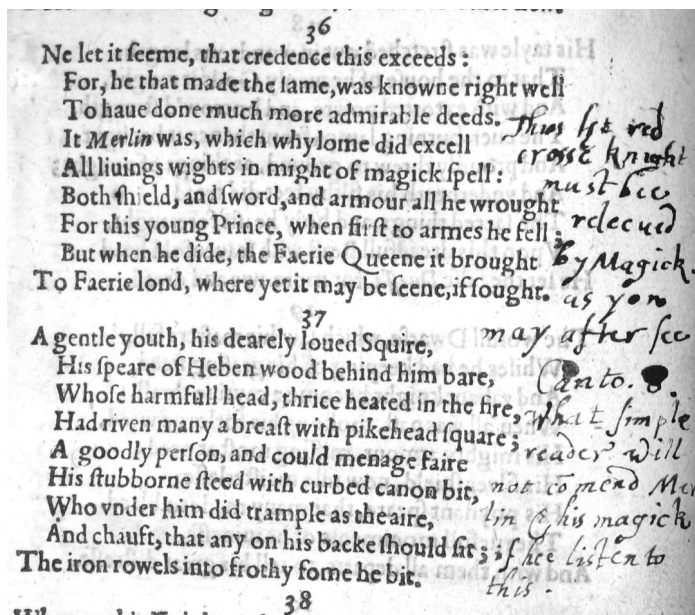 36
Ne let it ſeeme, that credence this exceeds:
For, he that made the ſame,was knowne right well
To haue done much more admirable deeds.
It Merlin was, which whylome did excell
All liuings wights in might of magick ſpell:
Both ſhield, and ſword,and armour all he wrought
For this young Prince, when firſt to armes he fell;
But when he dide, the Faerie Queene it brought
To Faerie lond, where yet it may be ſeene,if ſought.
37
A gentle youth, his dearely loued Squire,
His ſpeare of Heben wood behind him bare,
Whoſe harmfull head, thrice heated in the fire,
Had riven many a breaſt with pikehead ſquare;
A goodly perſon, and could menage faire
His ſtubborne ſteed with curbed canon bit,
Who vnder him did trample as the aire,
And chauft, that any on his backe ſhould ſit;
The iron rowels into frothy fome he bit.
38
Thus the red
croſſe knight
must bee
releeued
by Magick.
as you
may after ſee
Canto. 8.
what ſimple
reader will
not comend Mer
lin & his magick
if hee listen to
this.